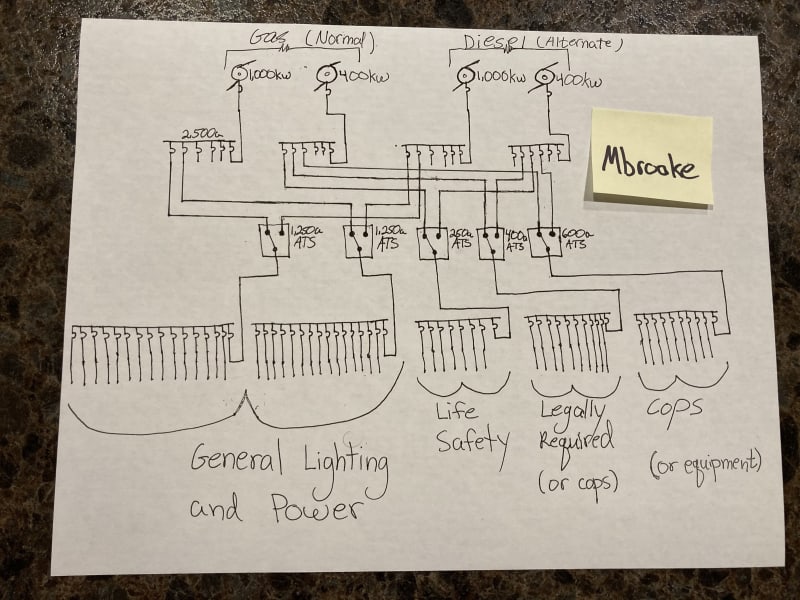 Gas (Normal)
Diesel (Alternate)
1,000kw
400kw
1,000kw
400kw
2,500a
Mbrooke
1,250a
ATS
1,250a
ATS
250a
ATS
400a
ATS
600a
ATS
General Lighting
and Power
Life
Safety
Legally
Required
(or cops)
COPS
(or equipment)